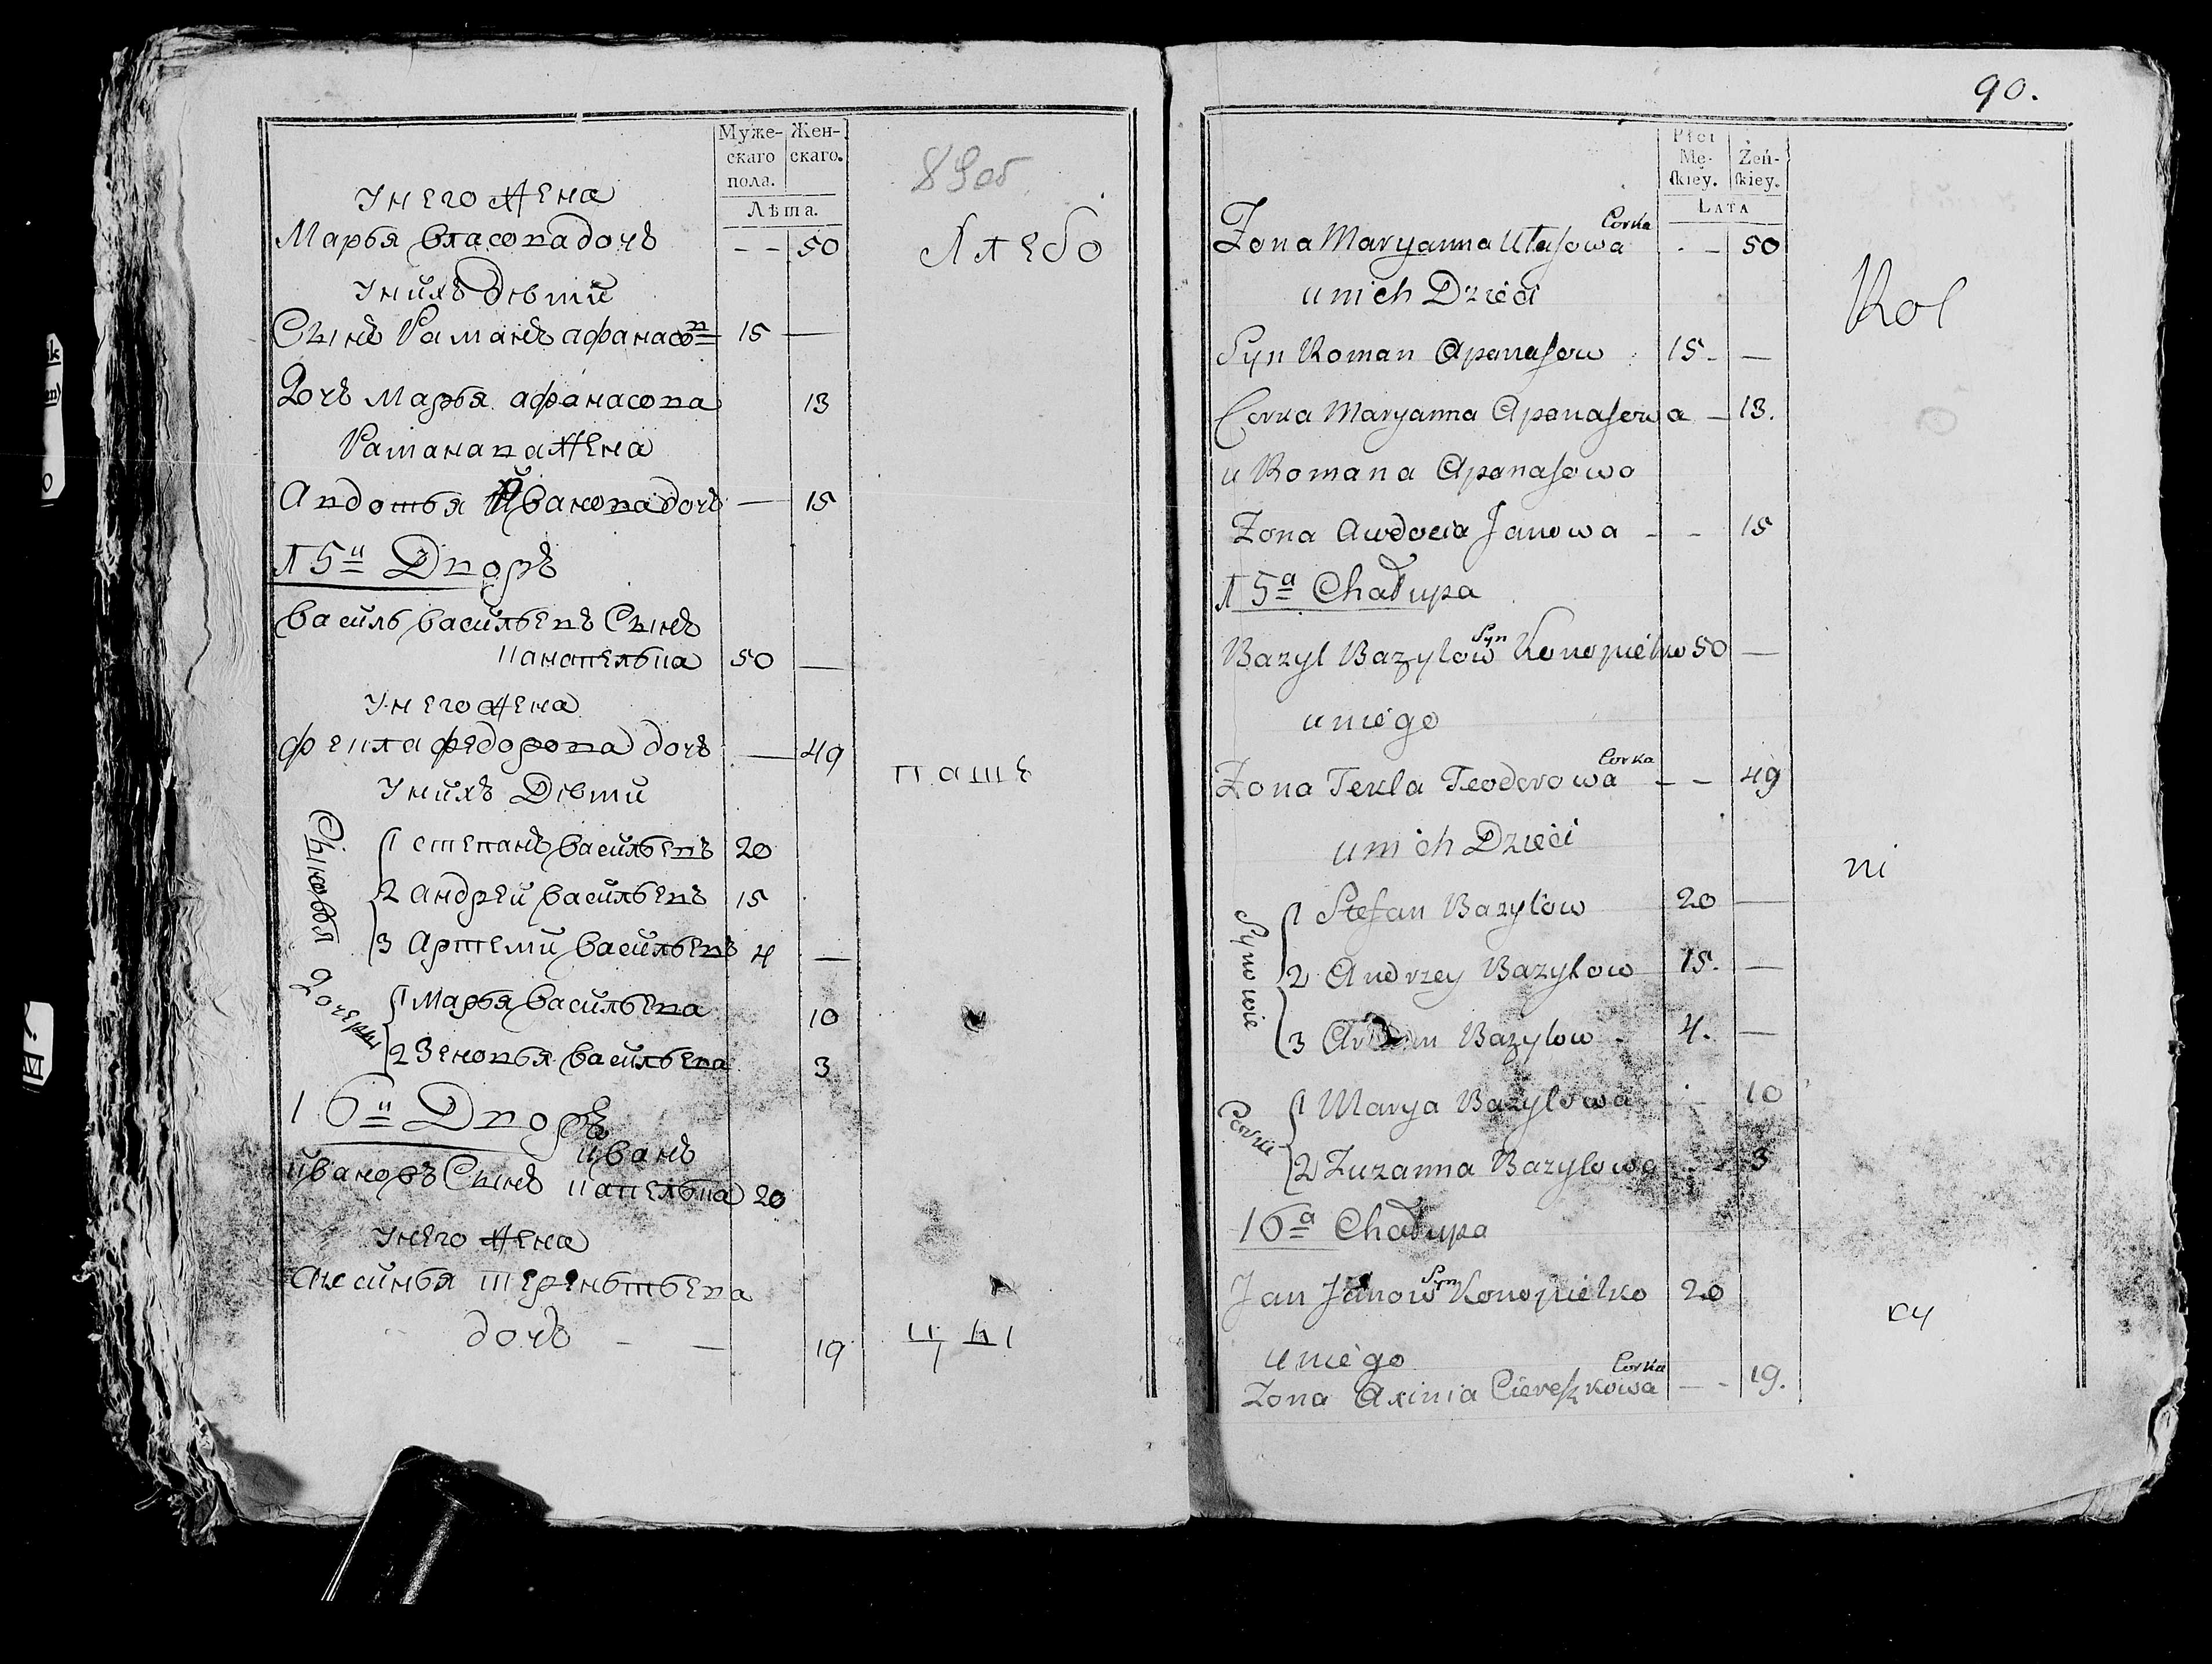 Муже-
скаго
пола.
Жен-
скаго.
Лѣта.
89об
У него жена
Марья власова дочь - - 50
Хлебо
У нихъ Дѣти
Сынъ Раманъ афанасов 15 —
Дочь Марья афанасова 13
Рамана жена
Авдотья Ивановадочь — 15
15й Дворъ
василь васильевъ Сынъ
канапелька 50 —
У него жена
фекла федорова дочь — 49
паше
У нихъ Дѣти
Сыновья
1 степанъ васильевъ 20
2 андрей васильевъ 15
3 Артеми васильевъ 4 —
Дочери
1 Марья васильева 10
2 Зеновья васильева 3
16й Дворъ
иванъ
ивановъ Сынъ 20
У него жена
Аксинья терентьева
дочь — — 19
цы
90.
Płci
Mę-
ſkiey.
Żeń-
ſkiey.
LATA
Corka
Zona Maryanna Ułasowa - — 50
u nich Dzieci
Rol
Syn Roman Apanasow 15 - —
Corka Maryanna Apanasowa — 13.
u Romana Apanasowo
Zona Awdocia Janowa - - 15
15a Chałupa
Syn
Bazyl Bazylow Konopielko 50 —
u niego
Corka
Zona Tekla Teodorowa — — 49
u nich Dzieci
ni
Synowie
1 Stefan Bazylow 20 —
2 Andrzey Bazylow 15. —
3 Bazylow 4. —
Corki
1 Marya Bazylowa 10
2 Zuzanna Bazylowa 3
16a Chałupa
Syn
Jan Janow Konopielko 20
cy
u niego
Corka
Zona Axinia Ciereszkowa — - 19.